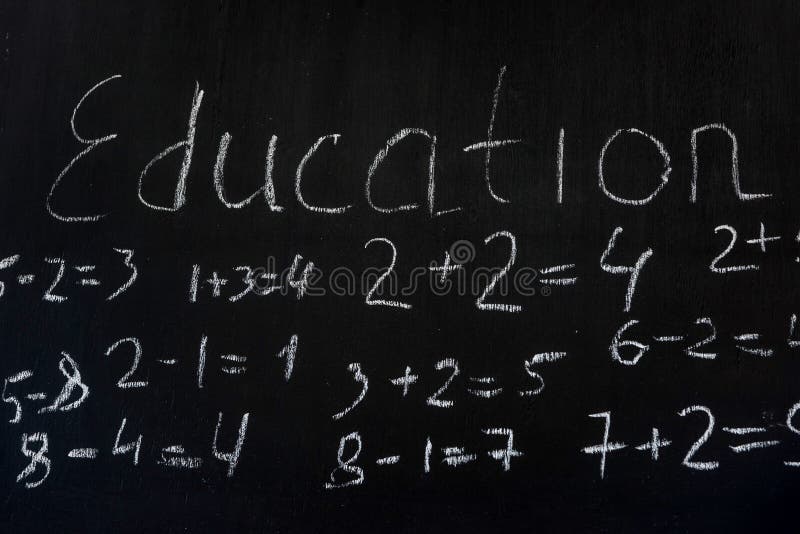 Education
5-2=3 1+3=4 2+2=4 2+
6-2=4
5-8 2-1=1 3+2=5
8-4=4 8-1=7 7+2=9
dreamstime